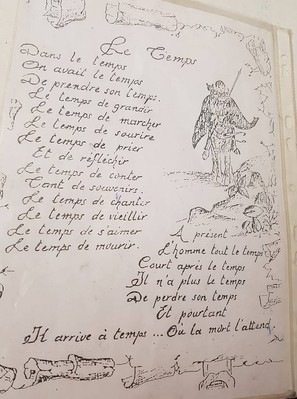 Le Temps
Dans le temps
On avait le temps
De prendre son temps.
Le temps de grandir
Le temps de marcher
Le temps de sourire
Le temps de prier
Et de réfléchir
Le temps de conter
Tant de souvenirs.
Le temps de chantir
Le temps de vieillir
Le temps de s'aimer
Le temps de mourir.
A présent
L'homme tout le temps
Court après le temps
Il n'a plus le temps
De perdre son temps
Et pourtant
Il arrive à temps ... Où la mort l'attend.